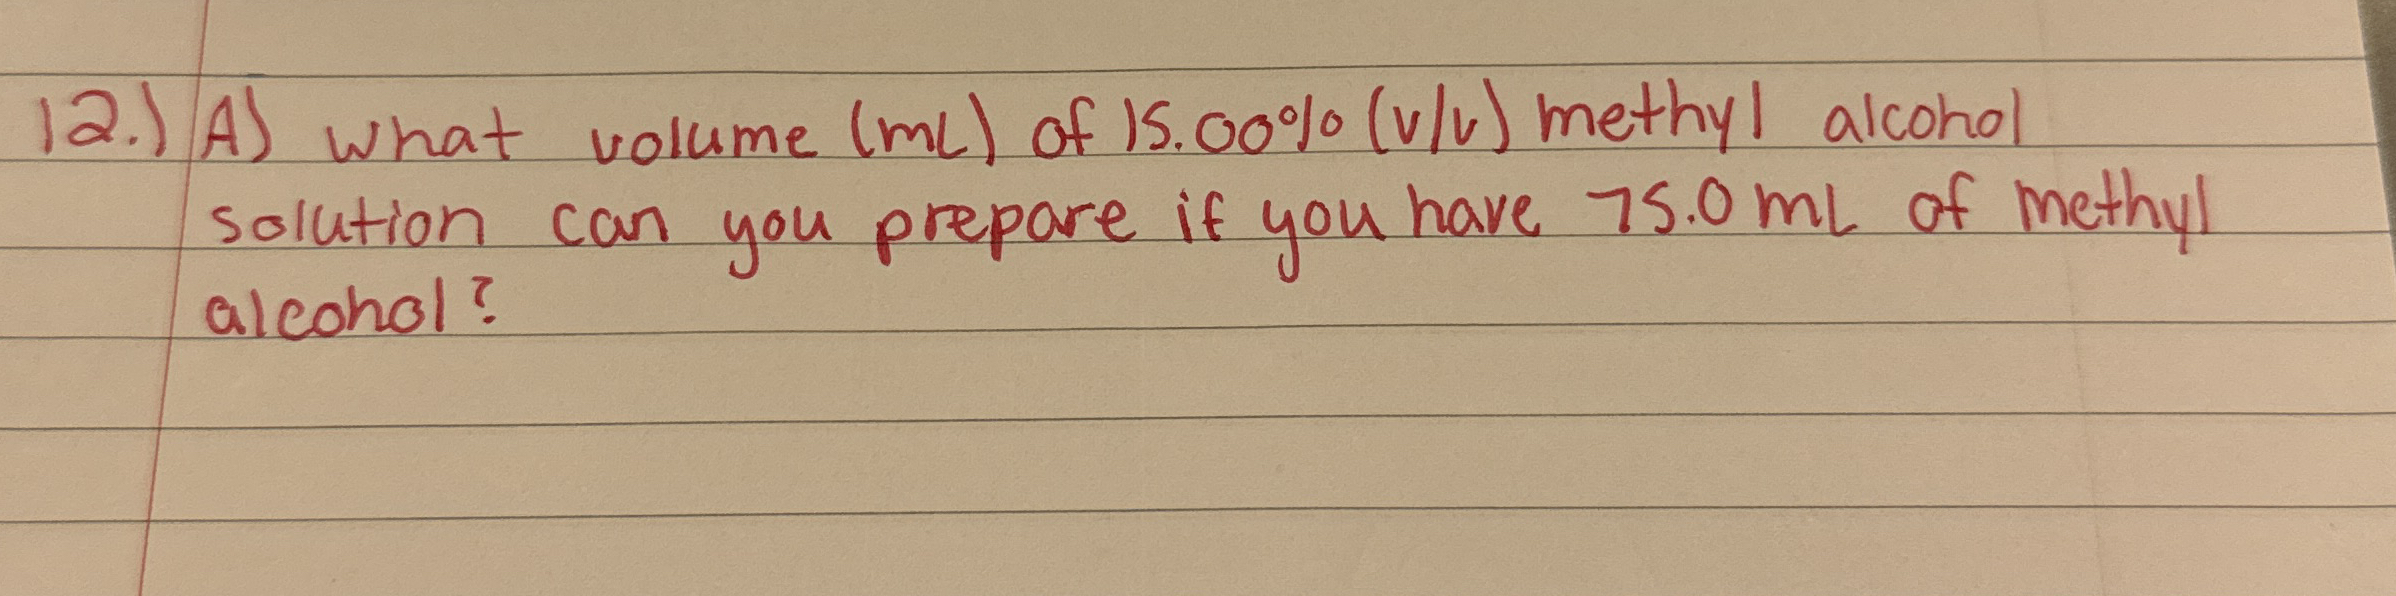 12.) A) what volume (mL) of 15.00% (v/v) methyl alcohol
solution can you prepare if you have 75.0 mL of methyl
alcohol?